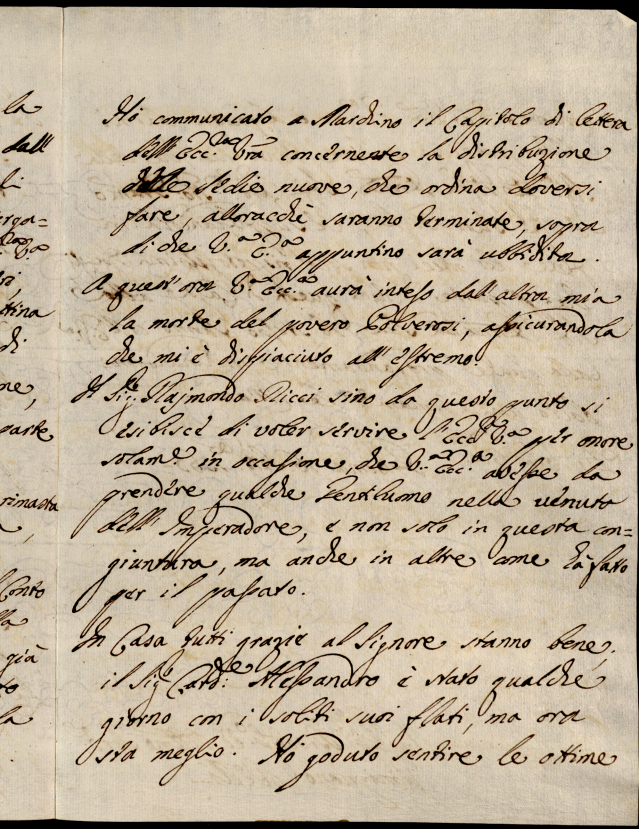 la
dall'
li
ergo=
tri,
ttina
di
ne,
parte
rimasta
Conto
lla
già
to
la
Hò communicato a Marchino il Capitolo di lettera
dell'Ecc.za Vrã concernente la distribuzione
delle sedie nuove, che ordina doversi
fare, alloracchè saranno terminate, sopra
di che V.a E.a appuntino sarà ubbidita.
A quest'ora V.a Ecc.a aurà inteso dall'altra mia
la morte del povero Polverosi, assicurandola
che mi è dispiaciuto all'estremo.
Il Sig.re Rajmondo Ricci sino da questo punto si
esibisce di voler servire l'Ecc.a V.a per onore
solam.e in occasione, che V.a Ecc.a avesse da
prendere qualche Gentiluomo nella venuta
dell'Imperadore, e non solo in questa con=
giuntura, ma anche in altre come hà fatto
per il passato.
In Casa tutti grazie al Signore stanno bene,
il Sig.e Card.le Alessandro è stato qualche
giorno con i soliti suoi flati, ma ora
sta meglio. Hò goduto sentire le ottime